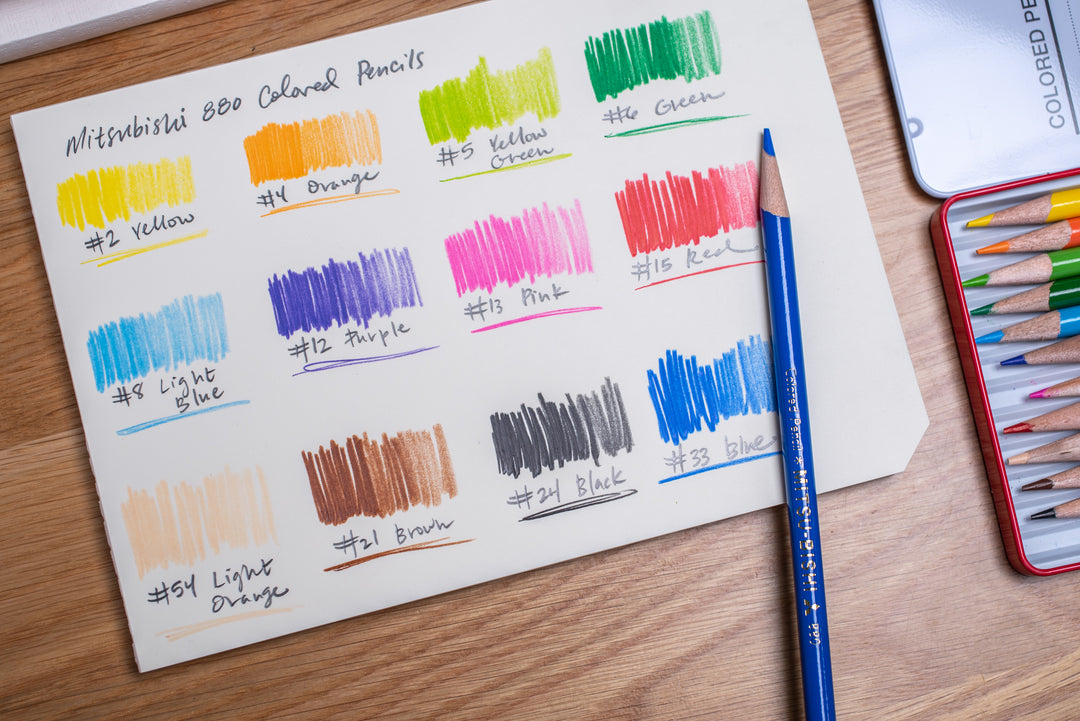 Mitsubishi 880 Colored Pencils
#2 Yellow
#4 Orange
#5 Yellow
Green
#6 Green
#8 Light
Blue
#12 Purple
#13 Pink
#15 Red
#54 Light
Orange
#21 Brown
#24 Black
#33 Blue
MITSU-BISHI 880
COLORED PE